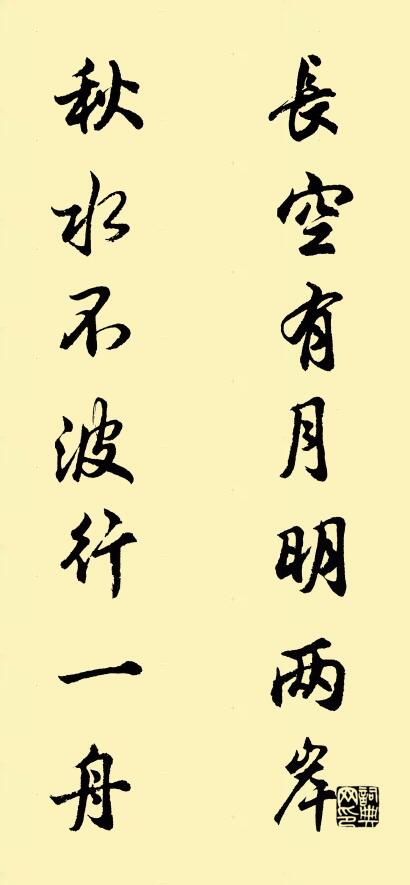 長空有月明两岸
秋水不波行一舟
詞典网印